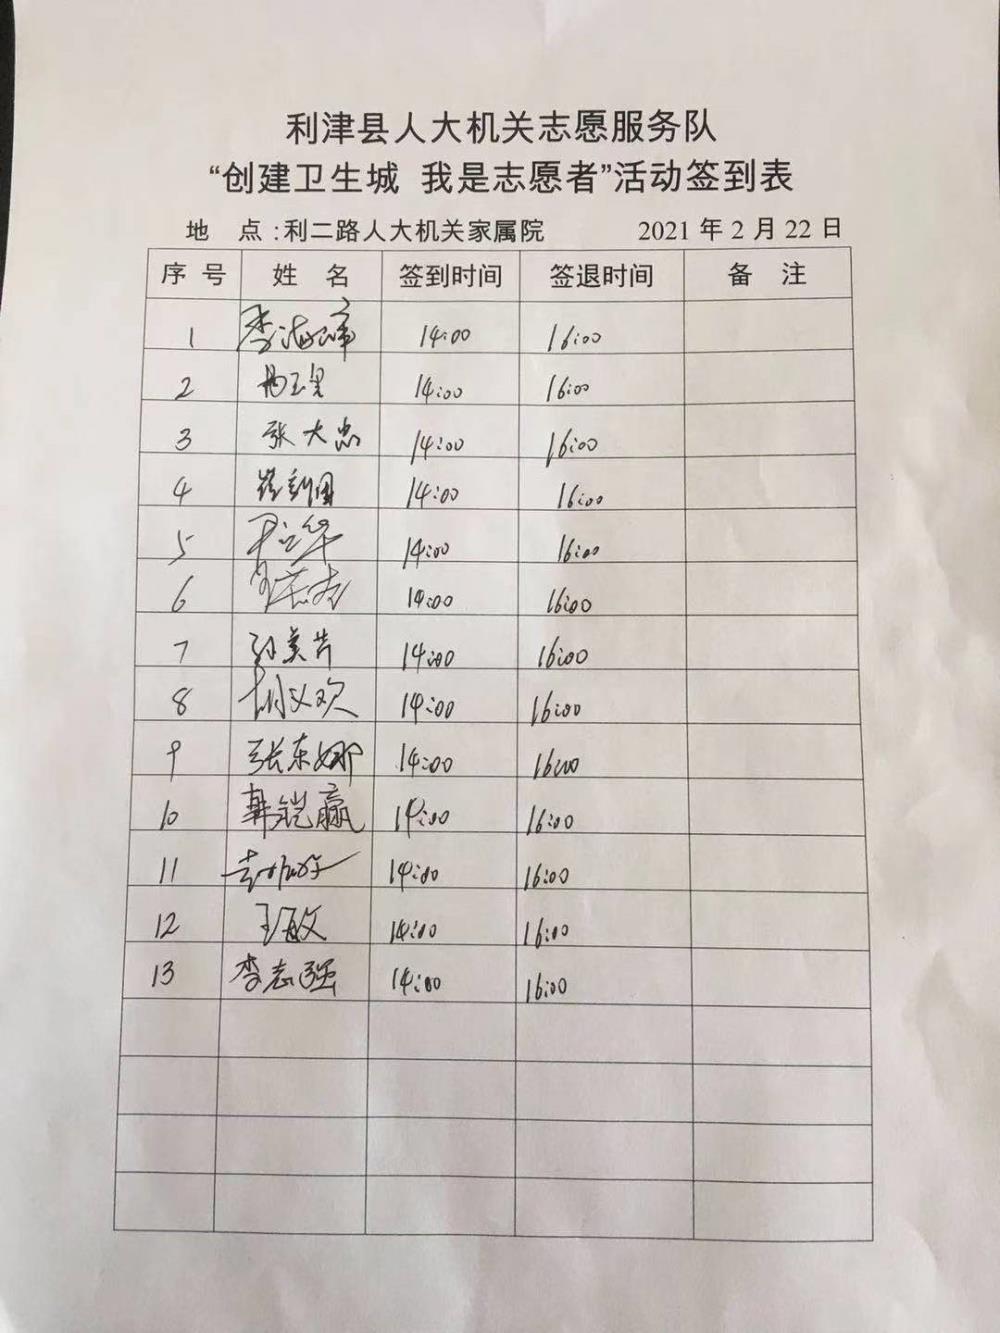 利津县人大机关志愿服务队
“创建卫生城 我是志愿者”活动签到表
地 点:利二路人大机关家属院 2021年2月22日
序号 姓名 签到时间 签退时间 备注
1 李海峰 14:00 16:00
2 14:00 16:00
3 张大忠 14:00 16:00
4 14:00 16:00
5 14:00 16:00
6 14:00 16:00
7 孙美芳 14:00 16:00
8 胡义欢 14:00 16:00
9 张东娜 14:00 16:00
10 韩铠赢 14:00 16:00
11 14:00 16:00
12 王敏 14:00 16:00
13 李志强 14:00 16:00